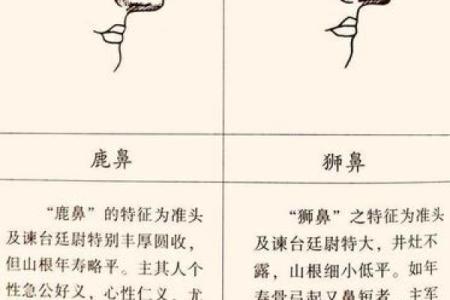 鹿鼻
“鹿鼻”的特征为准头
及谏台廷尉特别丰厚圆收，
但山根年寿略平。主其人个
性急公好义，心性仁义，尤
狮鼻
“狮鼻”之特征为准头
及谏台廷尉特大，井灶不
露，山根细小低平。如年
寿骨弓起又鼻短者，主军